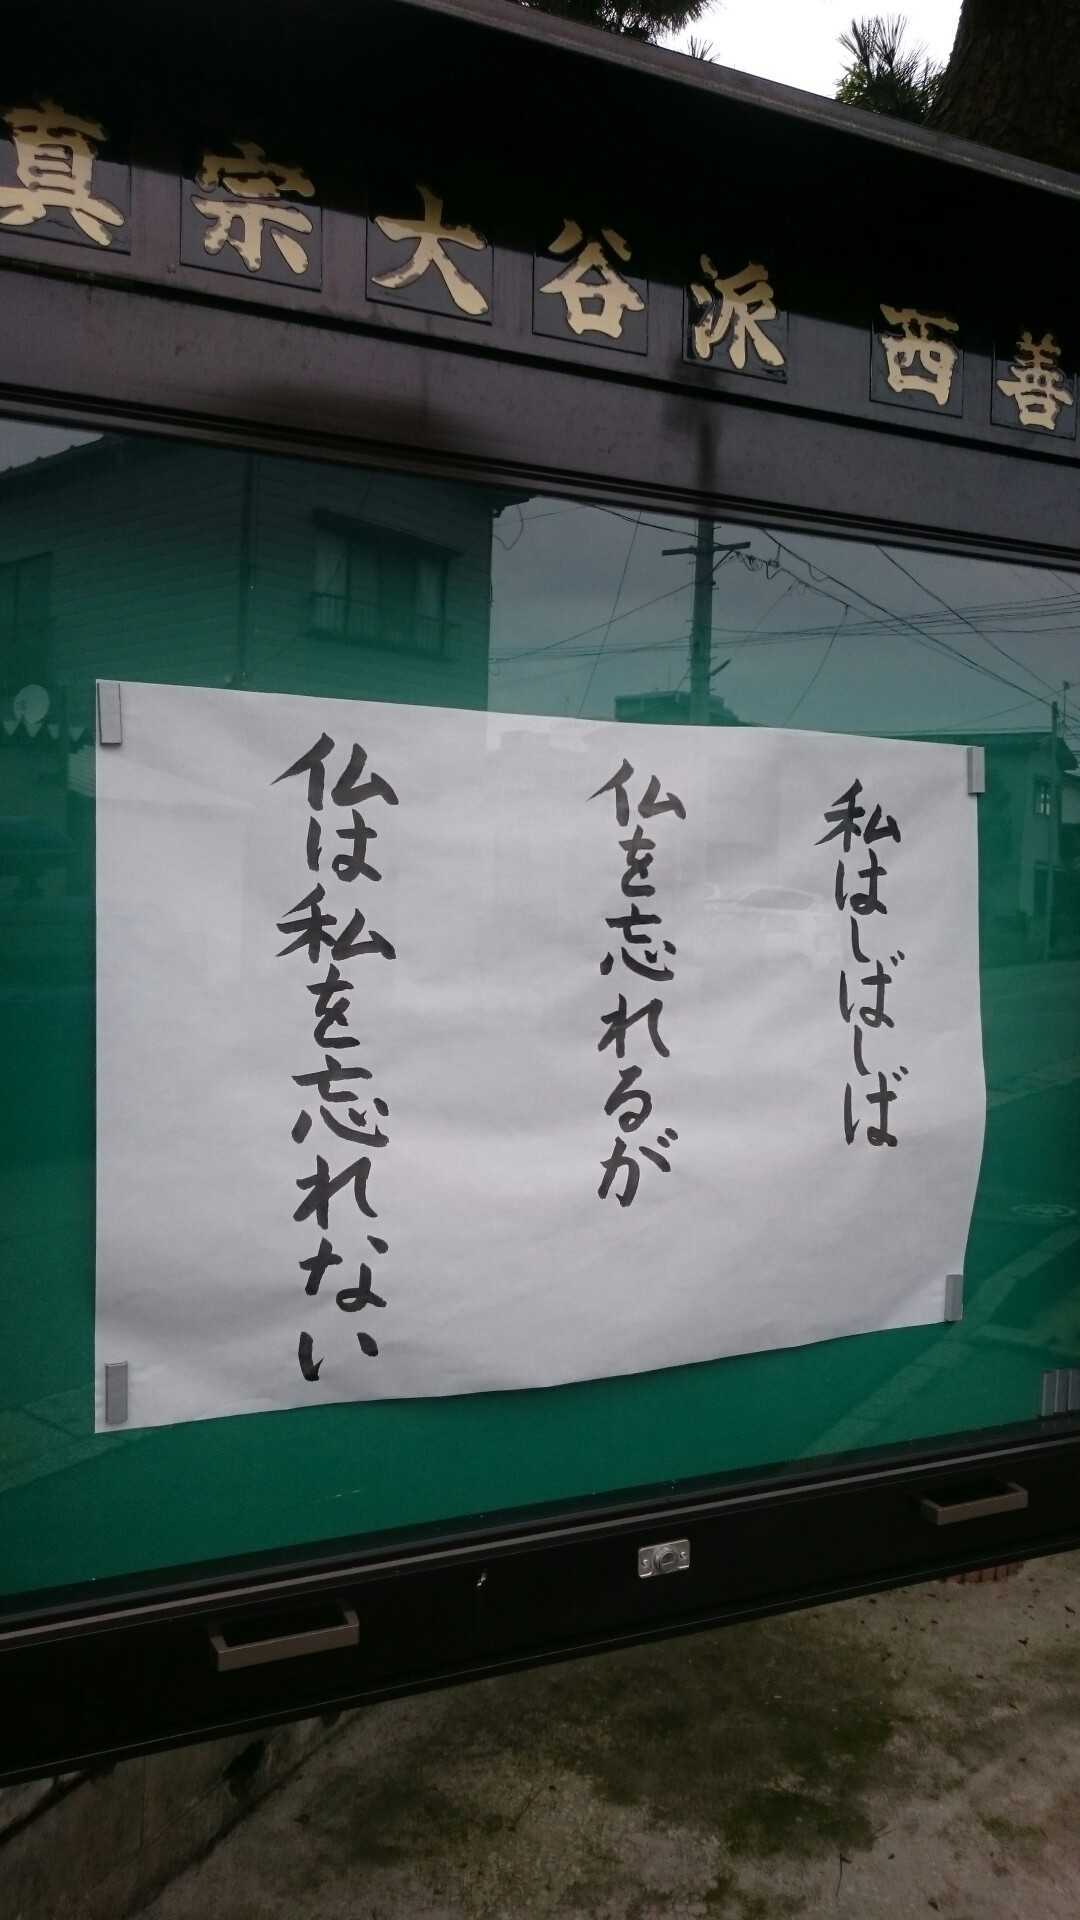 真宗大谷派 西善
私はしばしば
仏を忘れるが
仏は私を忘れない